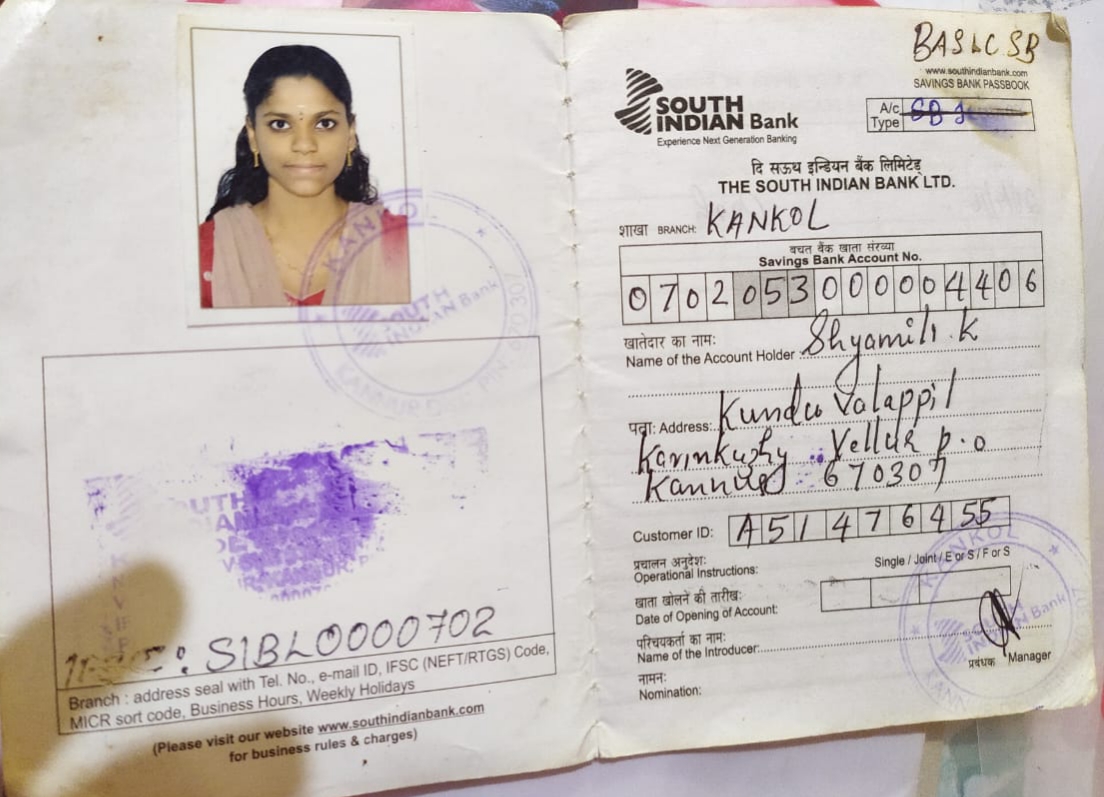 KANKOL
SOUTH
INDIAN Bank
KANNUR DIST. PIN 670 307
SOUTH
: SIBL0000702
Branch : address seal with Tel. No., e-mail ID, IFSC (NEFT/RTGS) Code,
MICR sort code, Business Hours, Weekly Holidays
(Please visit our website www.southindianbank.com
for business rules & charges)
BASIC SB
www.southindianbank.com
SAVINGS BANK PASSBOOK
A/c
Type
SOUTH
INDIAN Bank
Experience Next Generation Banking
दि साउथ इन्डियन बैंक लिमिटेड
THE SOUTH INDIAN BANK LTD.
शाखा BRANCH: KANKOL
बचत बैंक खाता संख्या
Savings Bank Account No.
0702053000004406
खातेदार का नाम:
Name of the Account Holder Shyamili. K
पता: Address: Kundu Valappil
Karinkuzhy Vellur p.o
Kannur 670307
Customer ID: A51476455
प्रचालन अनुदेश:
Operational Instructions:
Single / Joint / E or S / F or S
खाता खोलने की तारीख:
Date of Opening of Account:
परिचयकर्ता का नाम:
Name of the Introducer:
प्रबंधक Manager
नामन:
Nomination:
KANKOL
INDIAN Bank